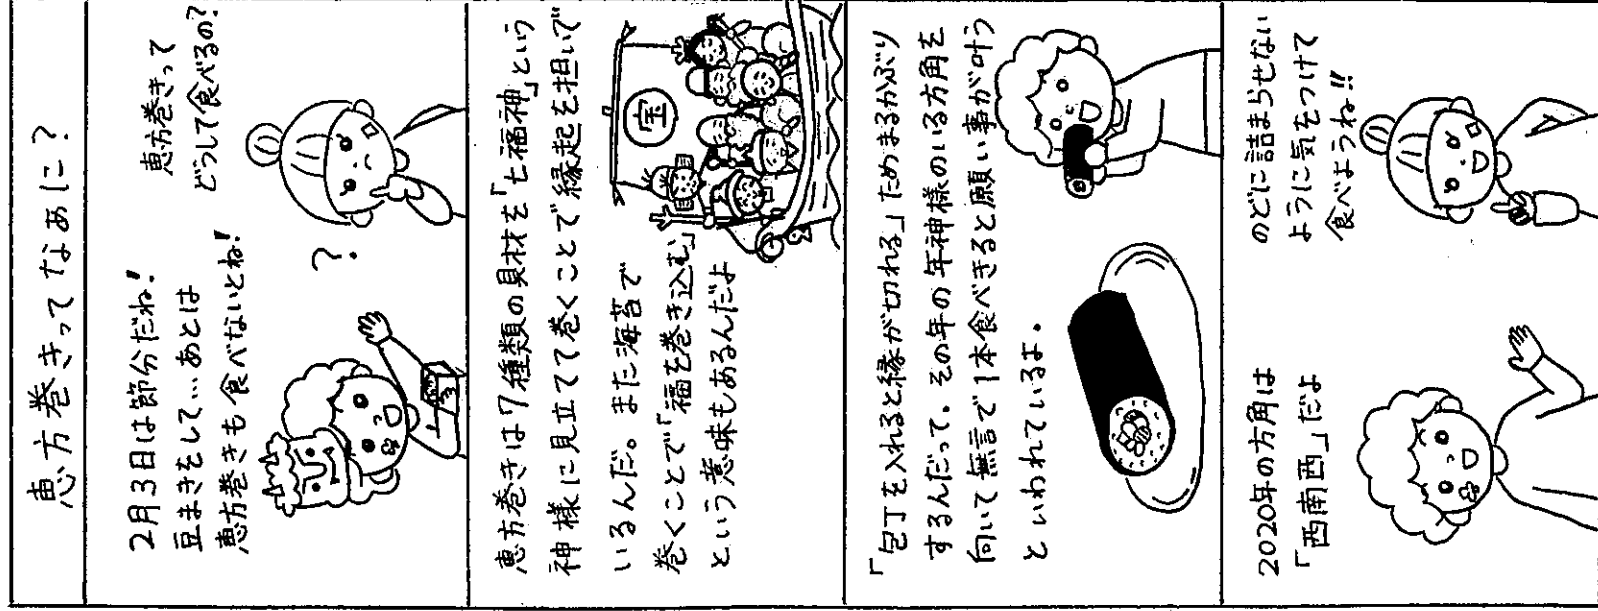 恵方巻きってなぁに?
2月3日は節分だね!
豆まきをして…あとは
恵方巻きも食べないとね!
恵方巻きって
どうして食べるの?
?
恵方巻きは7種類の具材を「七福神」という
神様に見立てて巻くことで縁起を担いで
いるんだ。また海苔で
巻くことで「福を巻き込む」
という意味もあるんだよ
宝
「包丁を入れると縁が切れる」ためまるかぶり
するんだって。その年の年神様のいる方角を
向いて無言で1本食べきると願い事が叶う
といわれているよ。
2020年の方角は
「西南西」だよ
のどに詰まらせない
ように気をつけて
食べようね!!